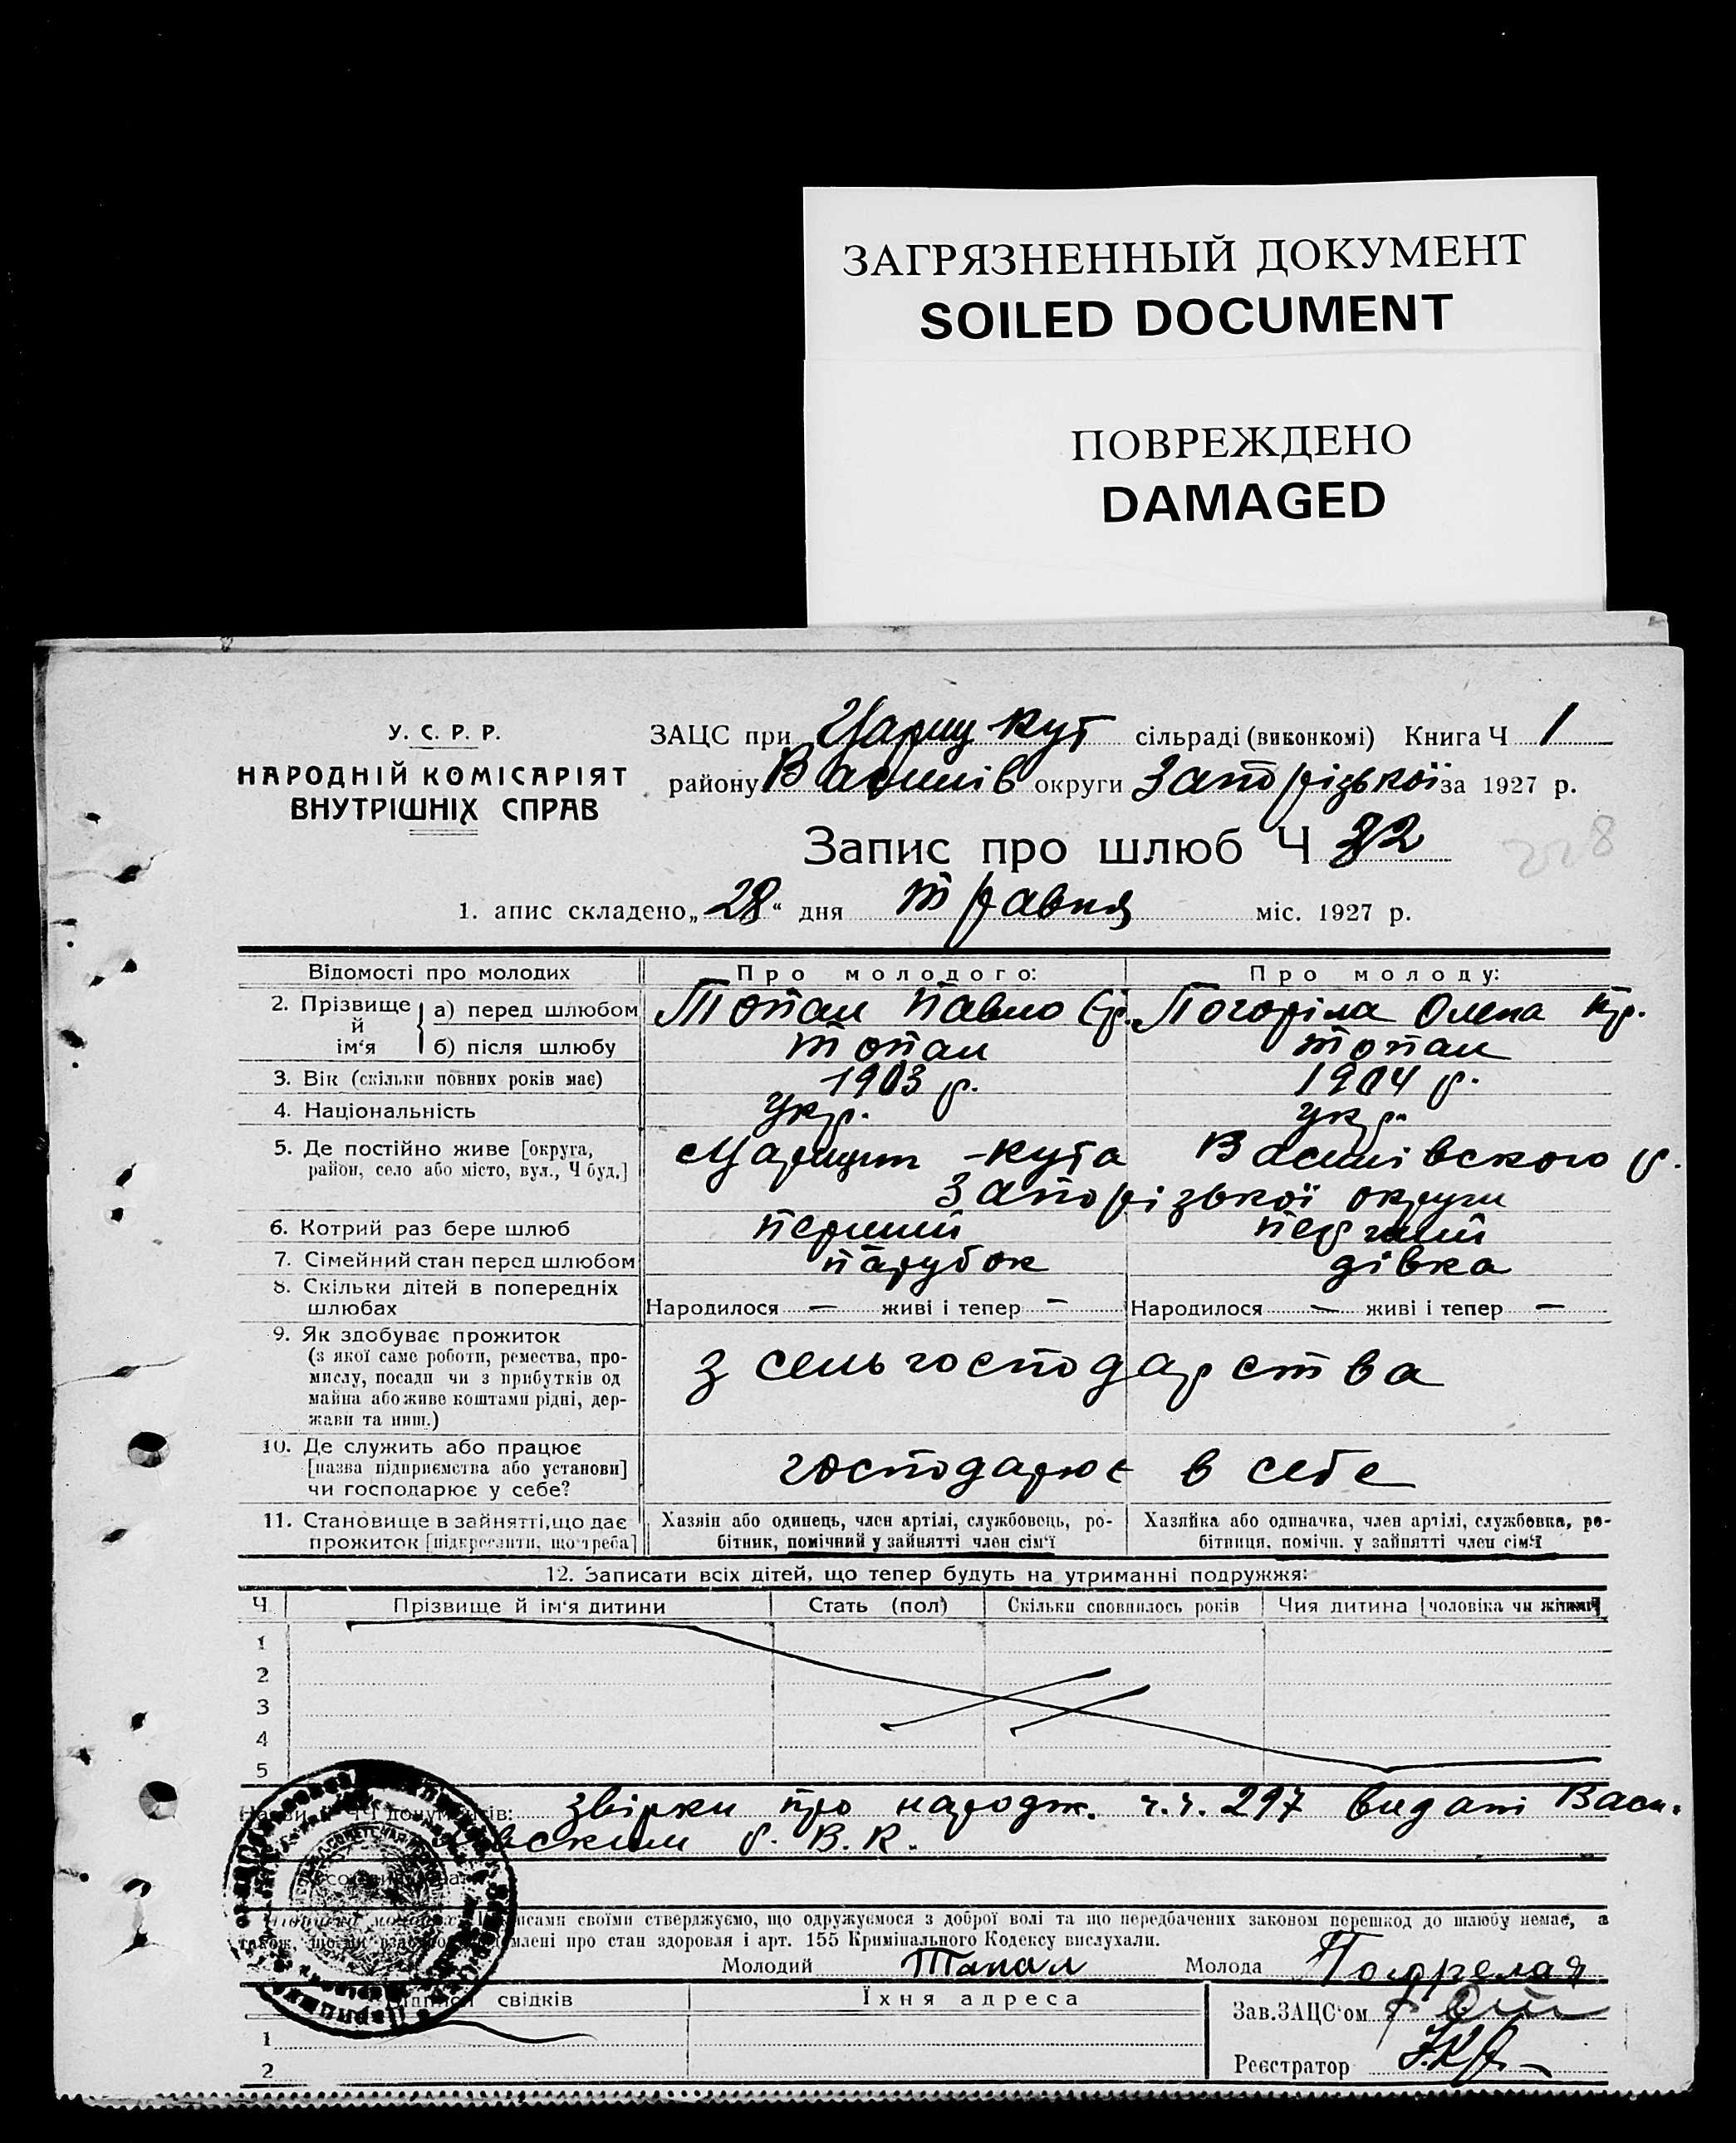 ЗАГРЯЗНЕННЫЙ ДОКУМЕНТ
SOILED DOCUMENT
ПОВРЕЖДЕНО
DAMAGED
У. С. Р. Р.
НАРОДНІЙ КОМІСАРІЯТ
ВНУТРІШНІХ СПРАВ
ЗАЦС при Цариц Кут сільраді (виконкомі) Книга Ч 1
району Василів округи Запорізької за 1927 р.
Запис про шлюб Ч 32
1. апис складено „28“ дня травня міс. 1927 р.
Відомості про молодих Про молодого: Про молоду:
2. Прізвище й ім‘я а) перед шлюбом Топал Павло Гр. Погоріла Олена Гр.
б) після шлюбу Топал Топал
3. Вік (скільки повних років має) 1903 р. 1904 р.
4. Національність укр. укр.
5. Де постійно живе [округа, Царицин-Кута Василівского р.
район, село або місто, вул., Ч буд.] Запорізької округи
6. Котрий раз бере шлюб перший перший
7. Сімейний стан перед шлюбом парубок дівка
8. Скільки дітей в попередніх
шлюбах Народилося — живі і тепер — Народилося — живі і тепер —
9. Як здобуває прожиток
(з якої саме роботи, ремества, про-
мислу, посади чи з прибутків од
майна або живе коштами рідні, дер-
жави та инш.)
з сельгосподарства
10. Де служить або працює
[назва підприємства або установи]
чи господарює у себе?
господарює в себе
11. Становище в зайнятті, що дає
прожиток [підкреслити, що треба]
Хазяїн або одинець, член артілі, службовець, ро-
бітник, помічний у зайнятті член сім‘ї
Хазяйка або одиначка, член артілі, службовка, ро-
бітниця, помічн. у зайнятті член сім‘ї
12. Записати всіх дітей, що тепер будуть на утриманні подружжя:
Ч Прізвище й ім‘я дитини Стать (пол) Скільки сповнилось років Чия дитина [чоловіка чи жінки]
1
2
3
4
5
документів: звірки про народж. ч.ч. 297 видані Васи-
лівским р. В. К.
своїми стверджуємо, що одружуємося з доброї волі та що передбачених законом перешкод до шлюбу немає, а
також, що ми про стан здоровля і арт. 155 Кримінального Кодексу вислухали.
Молодий Топал Молода Погорелая
свідків Їхня адреса
Зав. ЗАЦС‘ом
1
Реєстратор
2